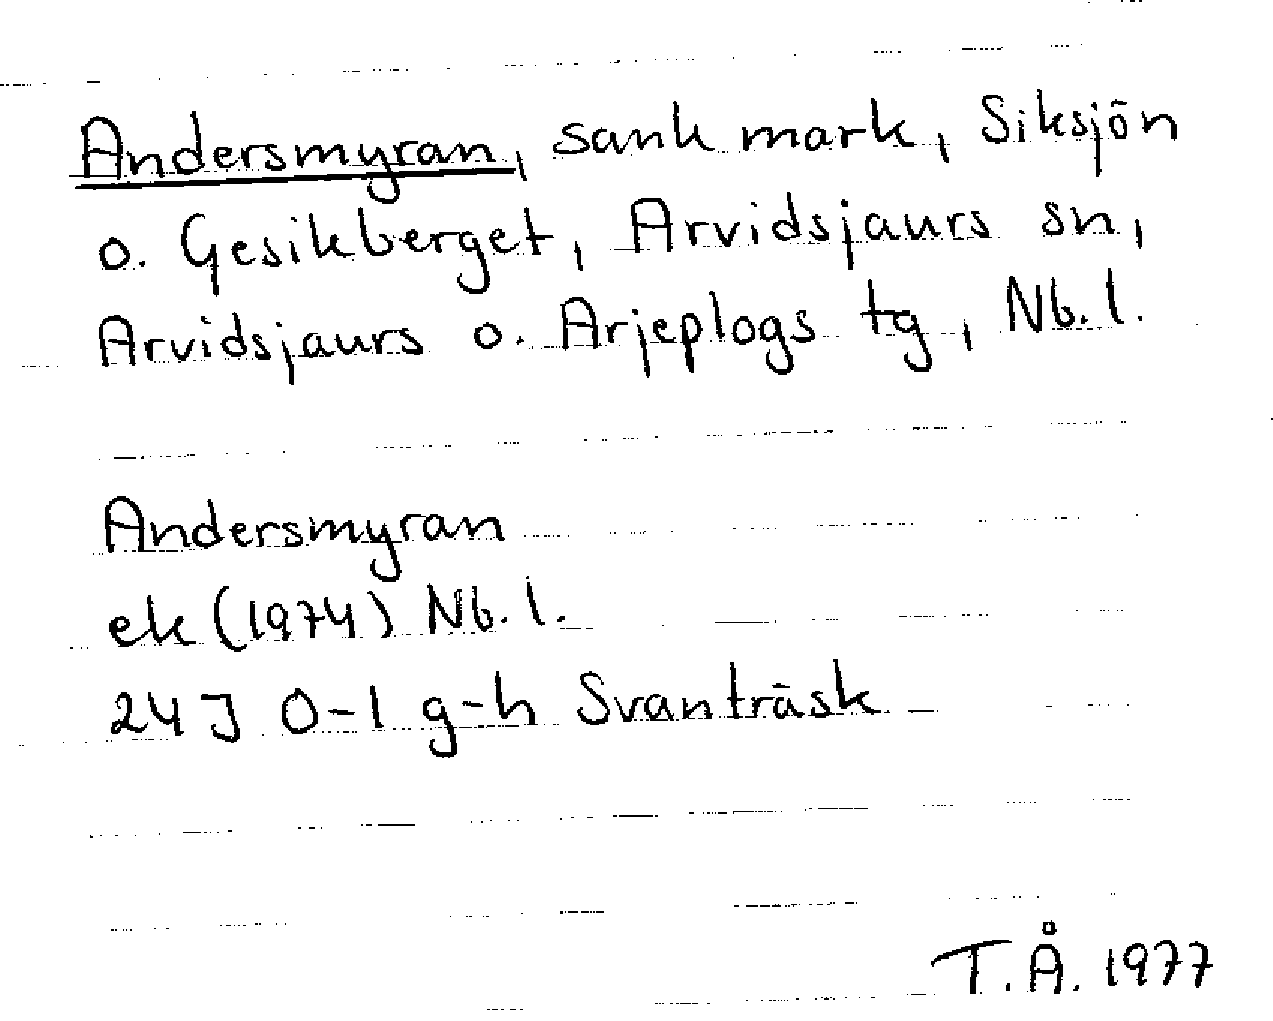 Andersmyran, sank mark, Siksjön
o. Gesikberget, Arvidsjaurs sn,
Arvidsjaurs o. Arjeplogs tg, Nb.l.
Andersmyran
ek (1974) Nb.l.
24 J 0-1 g-h Svanträsk
T.Å. 1977